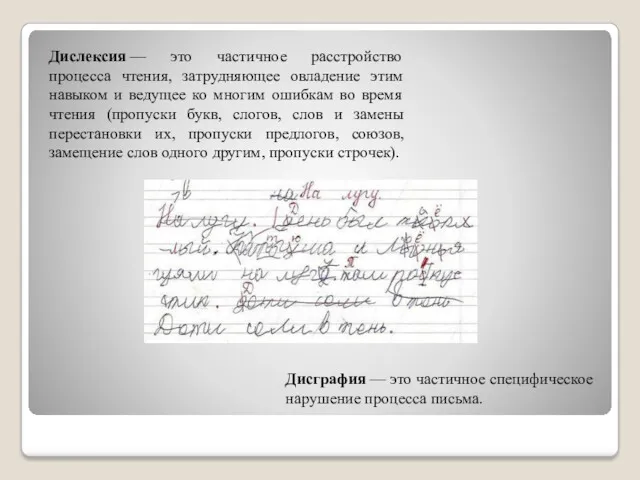 Дислексия — это частичное расстройство
процесса чтения, затрудняющее овладение этим
навыком и ведущее ко многим ошибкам во время
чтения (пропуски букв, слогов, слов и замены
перестановки их, пропуски предлогов, союзов,
замещение слов одного другим, пропуски строчек).
на На лугу.
На лугу. День был
лый. и
гуями на лугу. там
тик. Доти соли в тень
Доти соли в тень.
Дисграфия — это частичное специфическое
нарушение процесса письма.